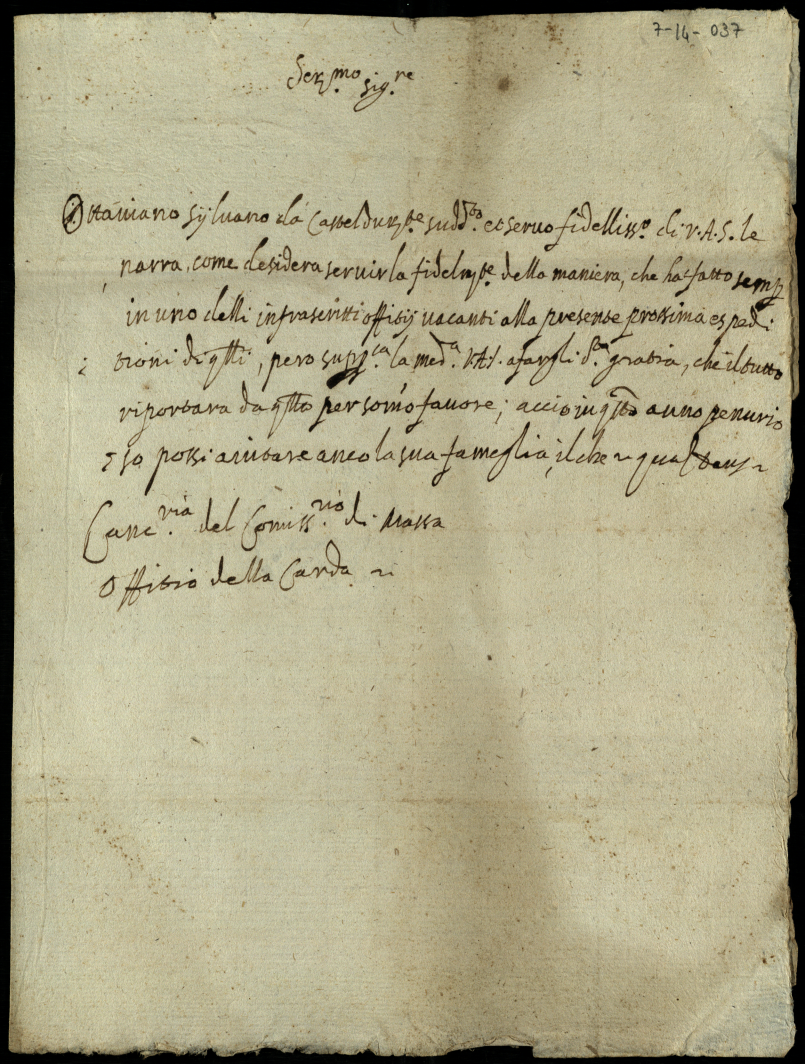 7-14-037
Ser.mo Sig.re
Ottaviano Sylvano da Casteldur.te sudd.to et servo fidelliss.o di V.A.S. le
narra, come desidera servirla fidelm.te della maniera, che ha fatto semp
in uno delli infrascritti offitij vacanti alla presente prossima espedi
tioni di q.lli, pero supp.ca la med.a V.A.S. a fargli d.ta gratia, che il tutto
riportara da q.lla per som.o favore; accio in q.sto anno penurio
so possi aiutare anco la sua fameglia, il che
Canc.ria del Comiss.rio di Massa
Offitio della Carda